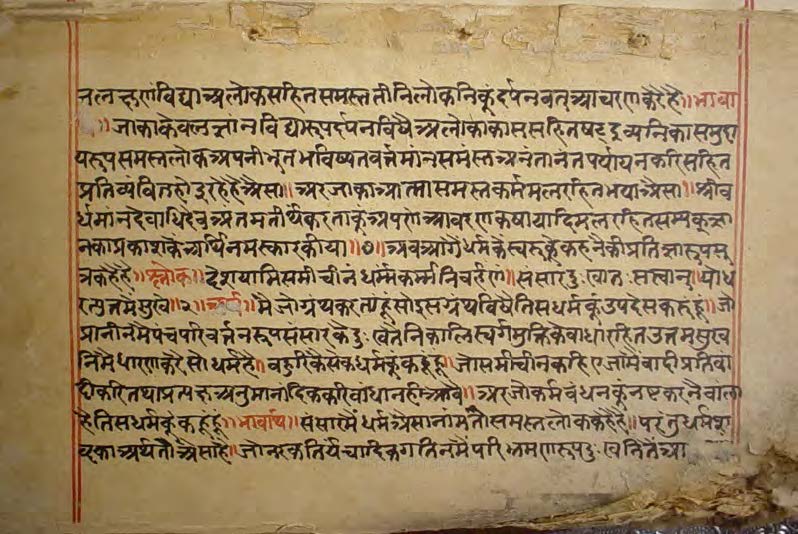 जलक्षणं विद्या अलोक सहित समस्त तीनि लोकनिकूं दर्पनवत् आचरण करै है॥ भावा
र्थ॥ जाका केवलज्ञान विद्यारूप दर्पन विषै अलोकाकास सहित षट द्रव्यनिका समुदा
यरूप समस्त लोक अपनी भूत भविष्यत वर्त्तमांन समंस्त अनंतानंत पर्यायन करि सहित
प्रतिव्यंवित हो इ रहे है अैसा॥ अर जाका आत्मा समस्त कर्ममल रहित भया अैसा॥ श्रीव
र्धमान देवाधिदेव अंतम तीर्थकर ताकूं अपणे आवरण कषायादि मल रहित सम्यक् ज्ञा
नका प्रकाशके अर्थि नमस्कार कीया॥०॥ अव आगै धर्मके स्वरूपकूं कहनेकी प्रतिज्ञारूप सू
त्र कहै है॥ श्लोक॥ देशयामि समीचीनं धर्म्मं कर्म्मनिवर्हणं॥ संसारदुःखातः सत्वान् यो ध
रत्युत्तमे सुखे॥२॥ अर्थ॥ मै जो ग्रंथकरता हूं सो इस ग्रंथ विषै तिस धर्मकूं उपदेस कहूंहूं॥ जो
प्रानीनमै पंच परिवर्त्तनरूप संसारके दुःखतै निकालि स्वर्ग मुक्तिके वाधारहित उत्तम सुख
निमै धारण करै सो धर्म है॥ वहुरि कैसेक धर्मकूं कहूंहूं॥ जो समीचीन कहिए जामै वादी प्रतिवा
दी करि तथा प्रत्यक्ष अनुमांनादिक करि वाधा नही आवै॥ अर जो कर्मवंधनकूं नष्ट करनैवाला
है तिस धर्मकूं कहूंहूं॥ भावार्थ॥ संसारमै धर्म अैसा नांम तो समस्त लोक कहै है॥ परंतु धर्म श
व्दका अर्थ तो अैसा है॥ जो नरक तिर्यंचादिक गतिनमै परिभ्रमणरूप दुःखनितै आ